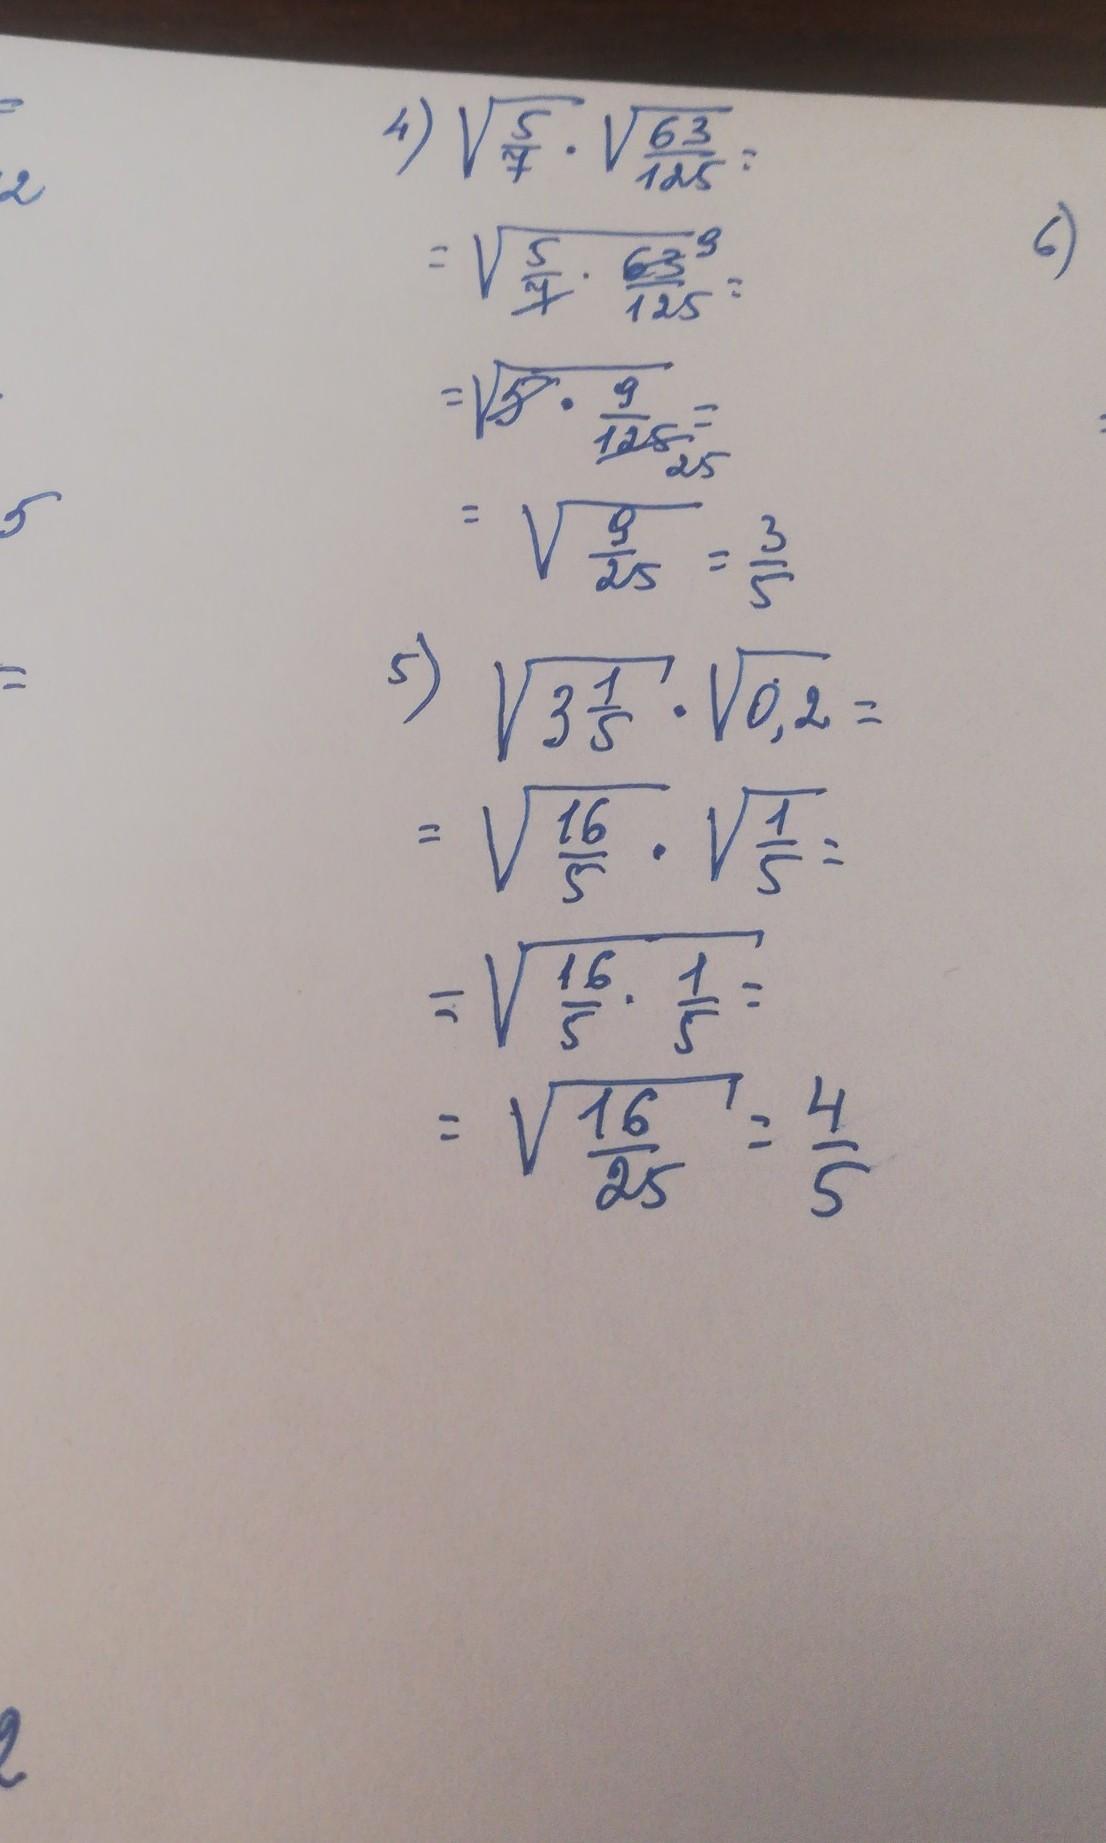 =
2
5
=
2
4) √(5/7) · √(63/125) =
= √(5/7 · 63/125) = 9
= √(5 · 9/125) = 25
= √(9/25) = 3/5
5) √(3 1/5) · √0,2 =
= √(16/5) · √(1/5) =
= √(16/5 · 1/5) =
= √(16/25) = 4/5
6)
=